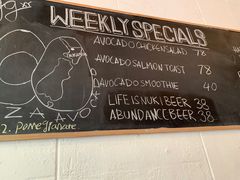 WEEKLY SPECIALS
AVOCADO CHICKEN SALAD 78
AVOCADO SALMON TOAST 78
AVOCADO SMOOTHIE 40
LIFE IS NUKI BEER 38
ABUNDANCE BEER 38
ZA AVO
2. pomegranate